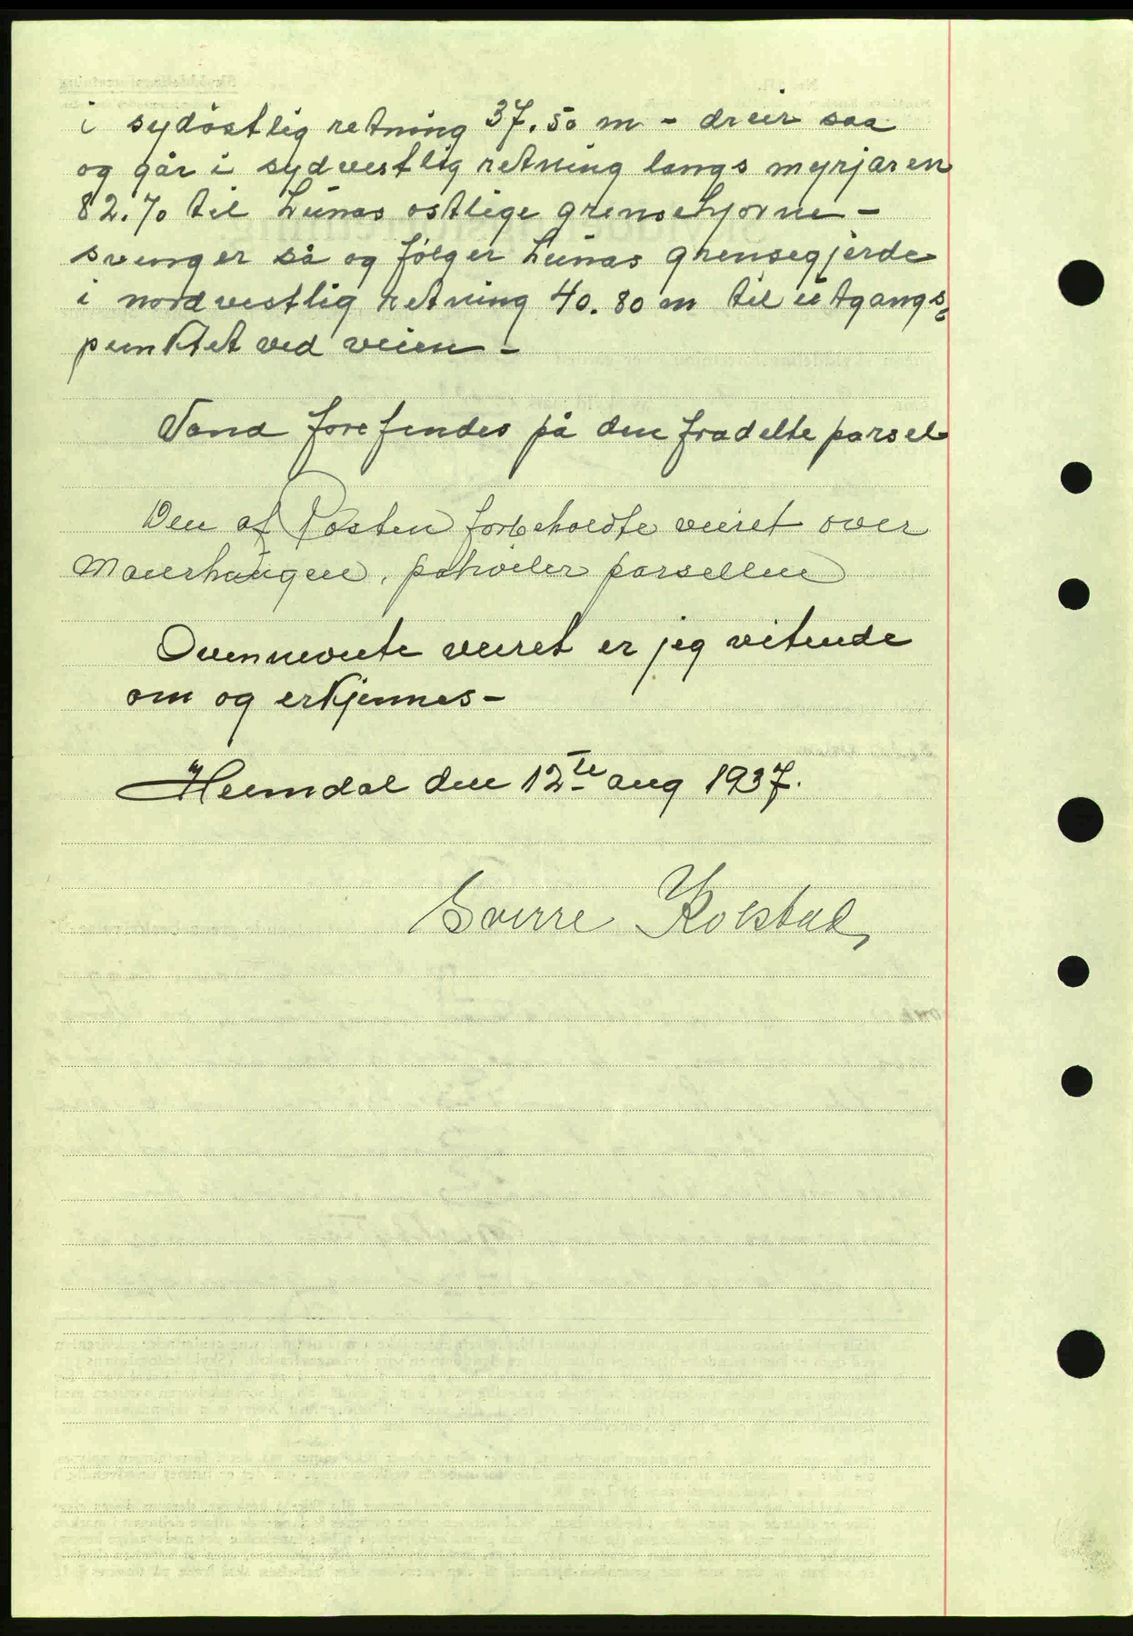 i sydöstlig retning 37.50 m - dreier saa
og går i sydvestlig retning langs myrjaren
82.70 til Lunas ostlige grensehjørne -
svinger så og følger Lunas grensegjerde
i nordvestlig retning 40.80 m til utgangs-
punktet ved veien -
Vand forefindes på den fradelte parsel
Den af Posten forbeholdte veiret over
Maurhaugen, påhviler parsellen
Ovennevnte veiret er jeg vitende
om og erkjennes -
Heimdal den 12te aug 1937.
Sverre Kolstad,